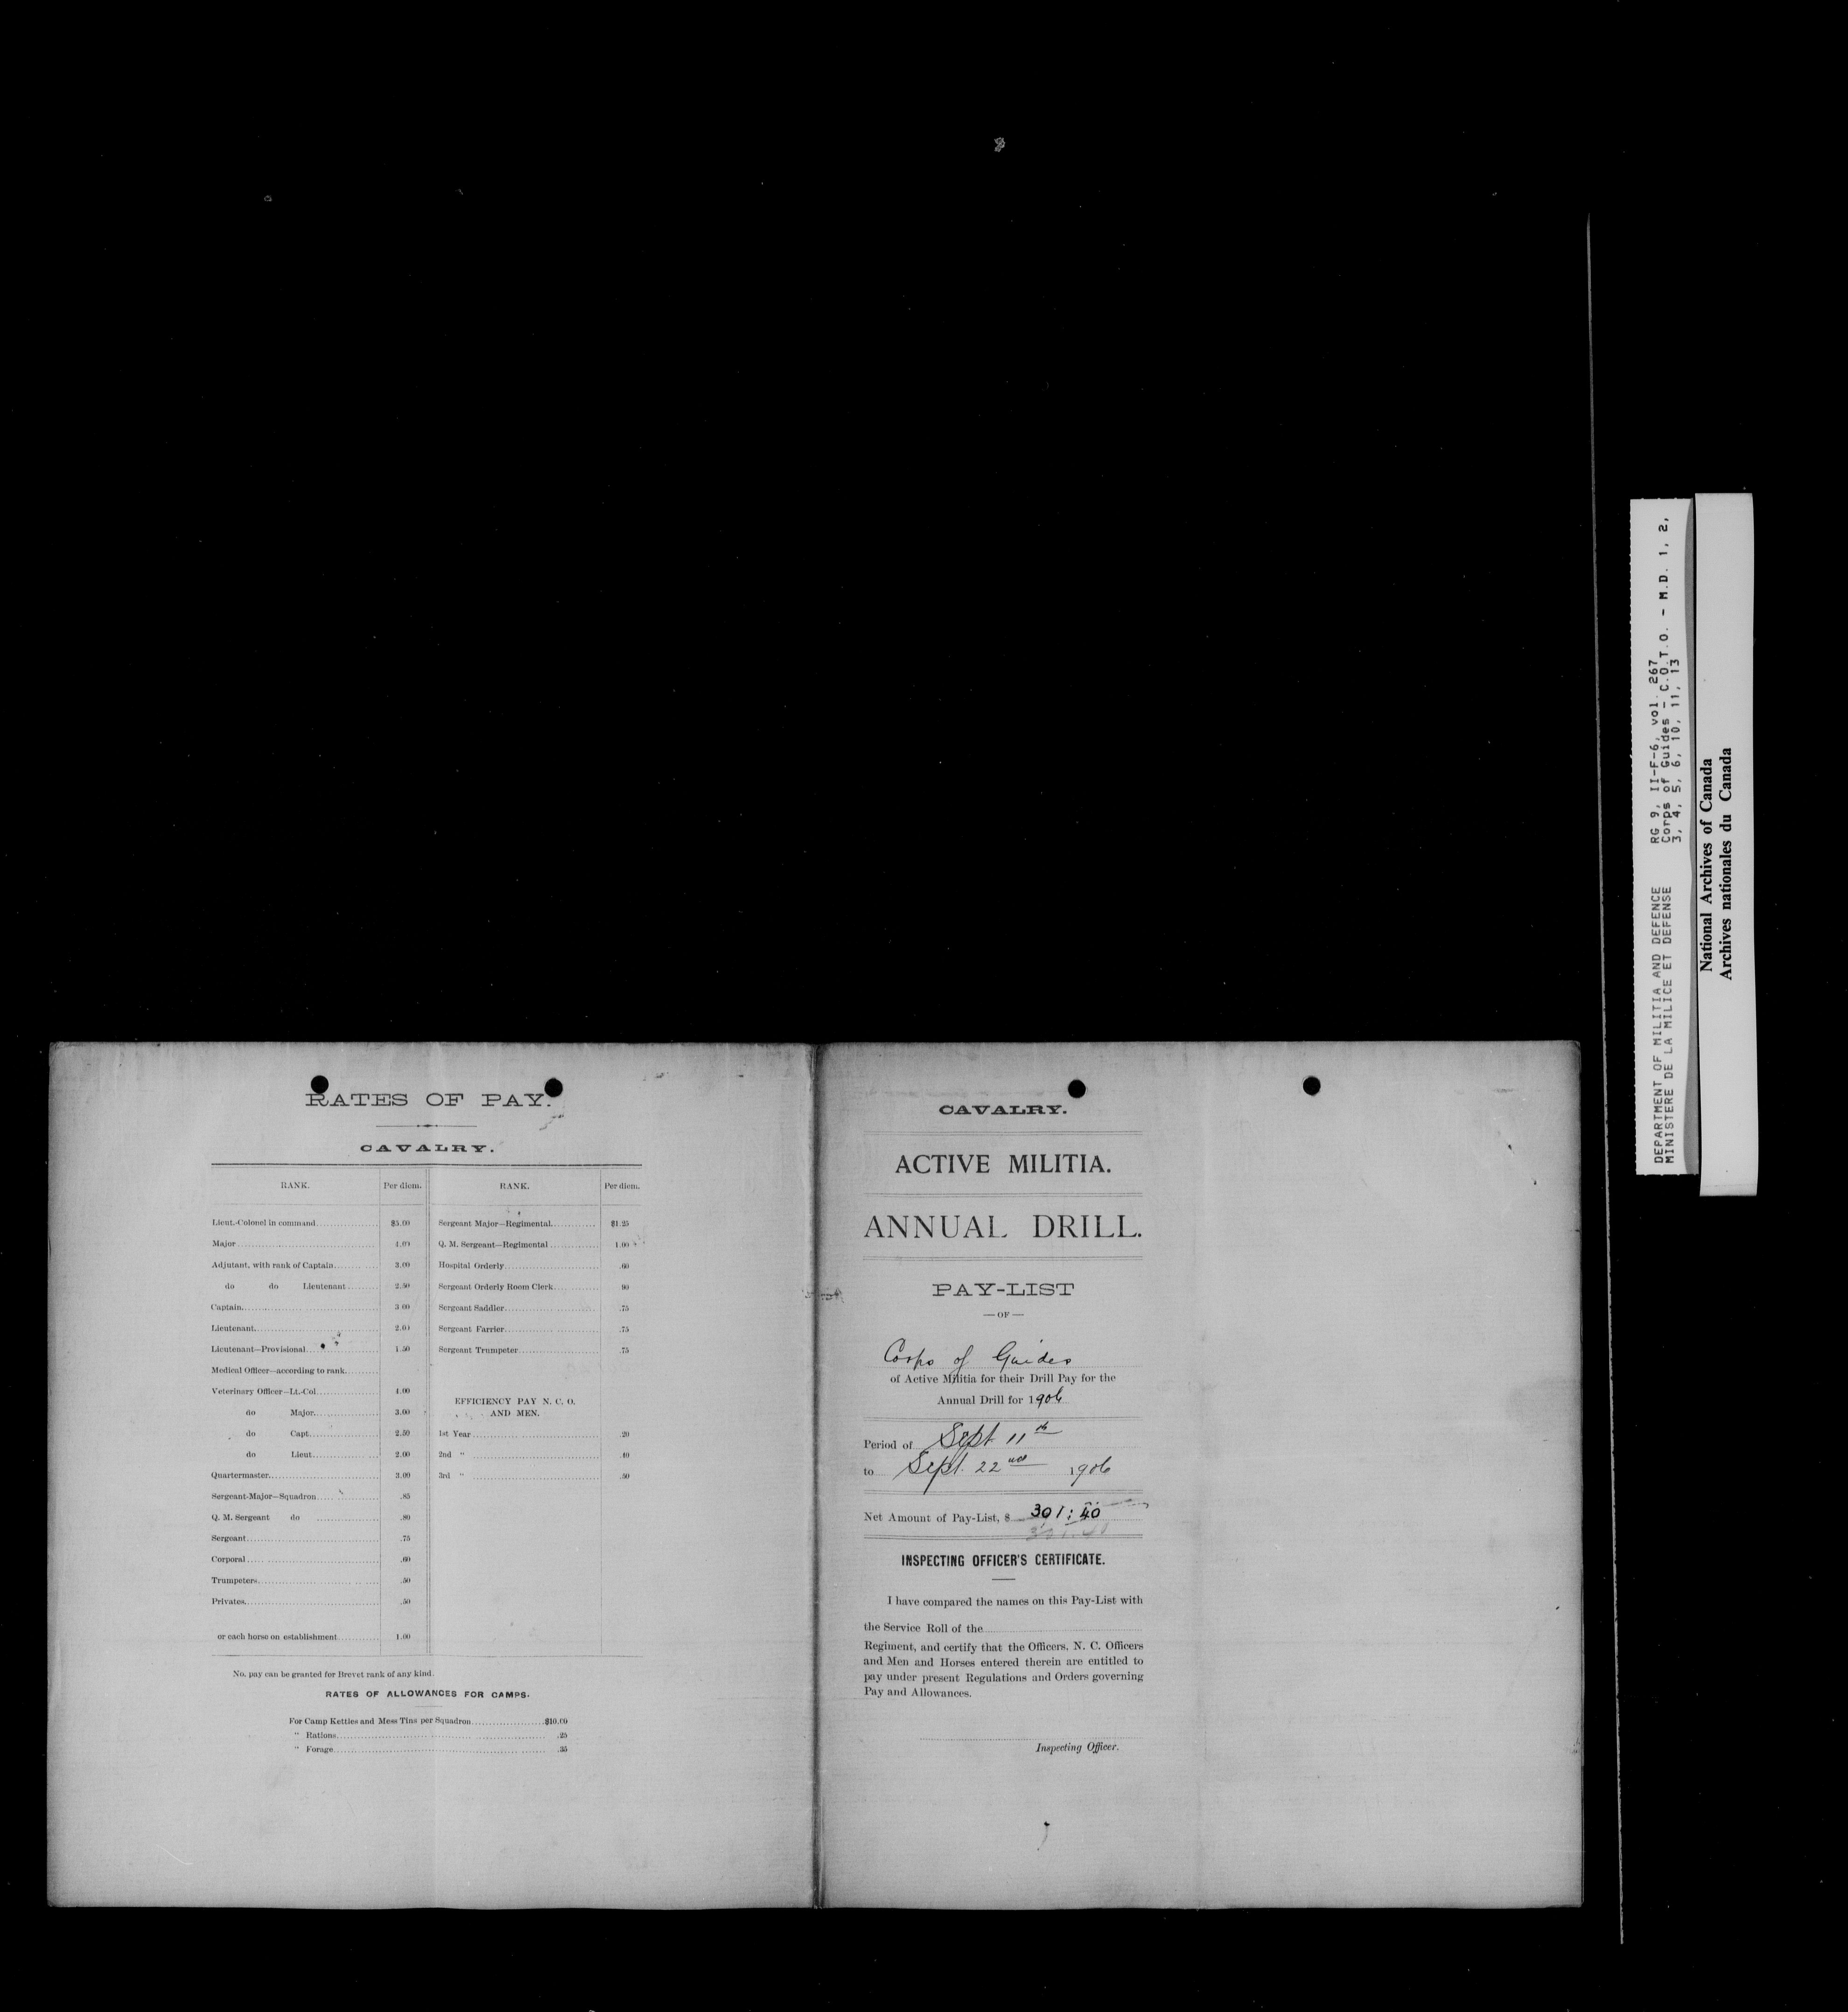 RATES OF PAY.
CAVALRY.
RANK. Per diem.
Lieut.-Colonel in command $5.00
Major 4.00
Adjutant, with rank of Captain 3.00
do do Lieutenant 2.50
Captain 3 00
Lieutenant 2.00
Lieutenant—Provisional 1.50
Medical Officer—according to rank
Veterinary Officer—Lt.-Col. 4.00
do Major 3.00
do Capt. 2.50
do Lieut. 2.00
Quartermaster 3.00
Sergeant-Major—Squadron .85
Q. M. Sergeant do .80
Sergeant .75
Corporal .60
Trumpeters .50
Privates .50
or each horse on establishment 1.00
RANK. Per diem.
Sergeant Major—Regimental $1.25
Q. M. Sergeant—Regimental 1.00
Hospital Orderly .60
Sergeant Orderly Room Clerk 90
Sergeant Saddler .75
Sergeant Farrier .75
Sergeant Trumpeter .75
EFFICIENCY PAY N. C. O.
AND MEN.
1st Year .20
2nd " .40
3rd " .50
No. pay can be granted for Brevet rank of any kind.
RATES OF ALLOWANCES FOR CAMPS.
For Camp Kettles and Mess Tins per Squadron $10.00
" Rations .25
" Forage .35
CAVALRY.
ACTIVE MILITIA.
ANNUAL DRILL.
PAY-LIST
— OF —
Corps of Guides
of Active Militia for their Drill Pay for the
Annual Drill for 1906
Period of Sept 11th
to Sept. 22nd 1906
Net Amount of Pay-List, $ 301:40
INSPECTING OFFICER'S CERTIFICATE.
I have compared the names on this Pay-List with
the Service Roll of the
Regiment, and certify that the Officers, N. C. Officers
and Men and Horses entered therein are entitled to
pay under present Regulations and Orders governing
Pay and Allowances.
Inspecting Officer.
DEPARTMENT OF MILITIA AND DEFENCE RG 9, II-F-6, vol. 267
MINISTERE DE LA MILICE ET DEFENSE Corps of Guides - C.O.T.O. - M.D. 1, 2,
3, 4, 5, 6, 10, 11, 13
National Archives of Canada
Archives nationales du Canada